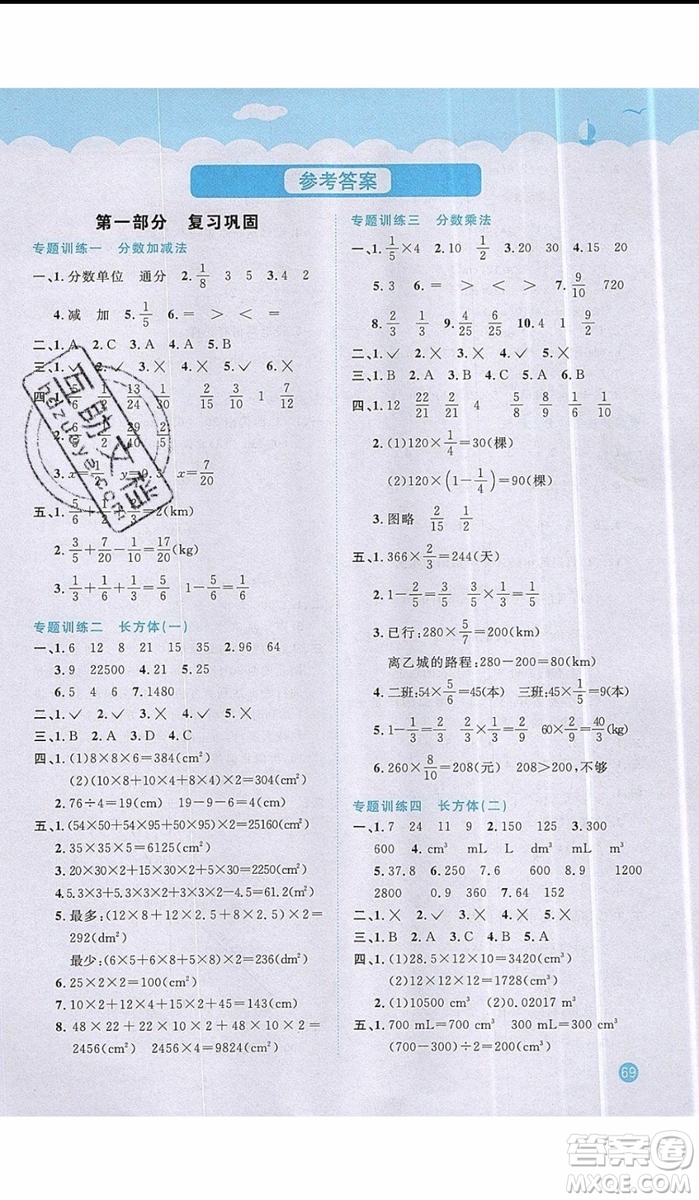 参考答案
第一部分 复习巩固
专题训练一 分数加减法
一、1. 分数单位 通分 2. 1/8 3 5 3. 4 2
4. 减 加 5. 1/5 6. = > < =
二、1. A 2. C 3. B
四、 13/24 29/30 1/6 1/2 7/12
3. x= y= x=7/20
=2(km)
2. 3/5+7/20-1/10=17/20(kg)
3. 1/3+1/6+1/3=5/6 1-5/6=1/6
专题训练二 长方体(一)
一、1. 6 12 8 21 15 35 2. 96 64
3. 9 22500 4. 21 5. 25
6. 5 4 7. 1480
二、1. ✓ 2. × 3. ✓ 4. ✓ 5. ×
三、1. B 2. A 3. D 4. C
四、1. (1)8×8×6=384(cm²)
(2)(10×8+10×4+8×4)×2=304(cm²)
2. 76÷4=19(cm) 19-9-6=4(cm)
五、1. (54×50+54×95+50×95)×2=25160(cm²)
2. 35×35×5=6125(cm²)
3. 20×30+20×5×2+5×30×2=1100(cm²)
4. 5.3×5.3+5.3×3×2+3×5.3×2=91.69(cm²)
5. 最多:(12×8+12×5+8×5)×2-10×5×2=
292(dm²)
最少:(6×5+6×12+5×12)×2=236(dm²)
6. 25×2×2=100(cm²)
7. 10×2×4+10×4×2=160(cm²)
8. 48×22+22×10×2+48×10×2=
2456(cm²) 2456×4=9824(cm²)
专题训练三 分数乘法
一、1. 1/5×4 2. 10 1/2 3. 20 30 4. 15 20
5. 3 6. = > < > 7. 9/10 720
8. 2/3 2/3 9. 4/25 6/25 10. 4 1 9/10
二、1. ✓ 2. × 3. × 4. ✓ 5. ×
三、1. B 2. C 3. A 4. C 5. A
四、1. 12 22/21 2/21 4 5/8 8/9 1/6 1/6
2. (1)120×1/4=30(棵)
(2)120×(1-1/4)=90(棵)
3. 图略 2/15 1/2
五、1. 366×2/3=244(天)
2. 1-2/5=3/5 3/5×1/3=1/5
3. 已行:280×5/7=200(km)
离乙城的路程:280-200=80(km)
4. 二班:54×5/6=45(本) 三班:45×1/5=9(本)
6. 260×8/10=208(元) 208>200,不够
专题训练四 长方体(二)
一、1. 7 24 11 9 2. 150 125 3. 300
600 4. cm³ mL L cm³ mL
5. 37.8 6. 250 7. 2.6 2600 1620
2800 0.9 360 8. 125 150
二、1. × 2. × 3. ✓ 4. ✓ 5. ×
三、1. B 2. C 3. A 4. B 5. A
四、1. (1)28.5×12×10=3420(cm³)
(2)12×12×12=1728(cm³)
2. (1)10500 cm³ (2)0.02017 m³
五、1. 700 mL=700 cm³ 300 mL=300 cm³
(700-300)÷2=200(cm³)
69
互助文档
hdzuoye.com
答案圈
MXQE.COM